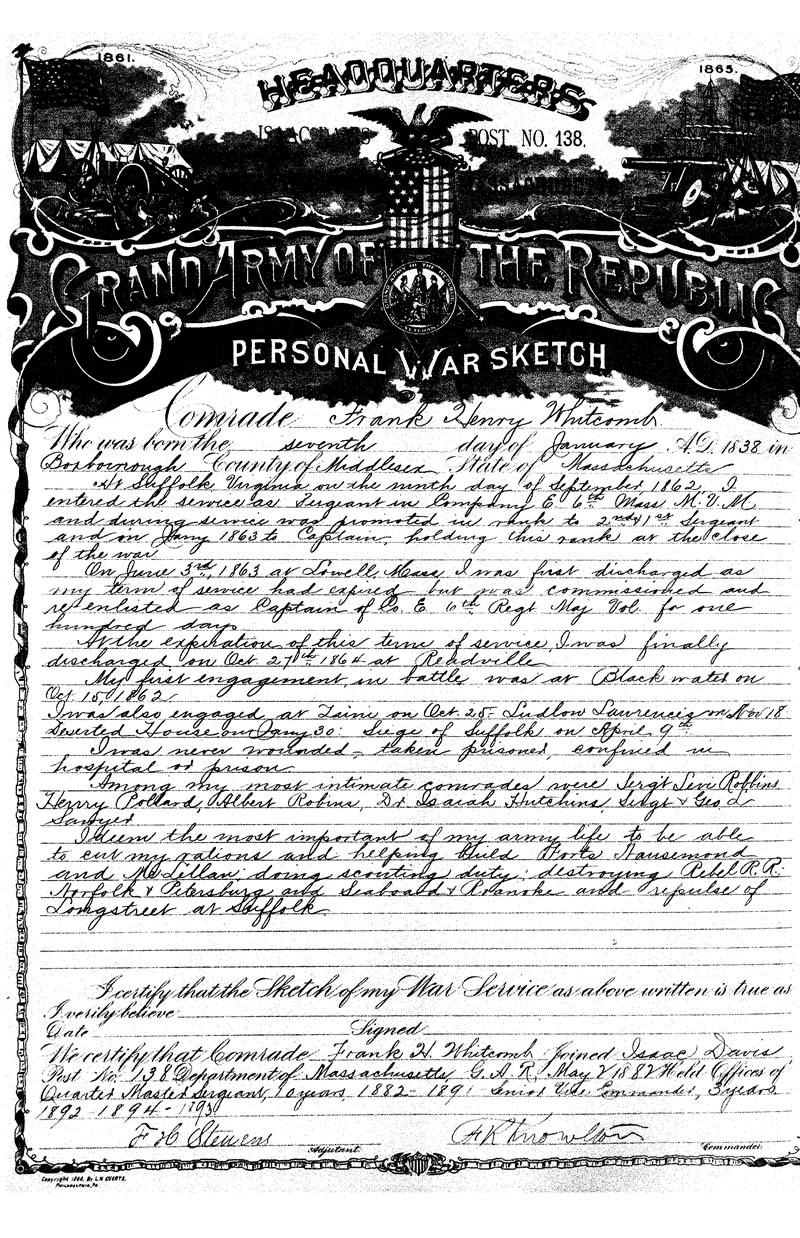 1861.
1865.
HEADQUARTERS
ISAAC DAVIS POST NO. 138.
MASSACHUSETTS
GRAND ARMY OF THE REPUBLIC
PERSONAL WAR SKETCH
Comrade Frank Henry Whitcomb
Who was born the seventh day of January A.D. 1838 in
Boxborough County of Middlesex State of Massachusetts
At Suffolk Virginia on the ninth day of September 1862, I
entered the service as Sergeant in Company E. 6th Mass. M.V.M
and during service was promoted in rank to 2nd & 1st Sergeant
and on Jany 1863 to Captain, holding this rank at the close
of the war
On June 3rd, 1863 at Lowell, Mass I was first discharged as
my term of service had expired but was commissioned and
re enlisted as Captain of Co. E. 6th Regt Vol. for one
hundred days
At the expiration of this term of service, I was finally
discharged on Oct 27th 1864 at Readville
My first engagement, in battle was at Black water on
Oct 15, 1862
I was also engaged at on Oct. 25- Ludlow on Nov 18
Deserted House on Jany 30: Siege of Suffolk on April 9th
I was never wounded, taken prisoner, confined in
hospital or prison.
Among my most intimate comrades were Sergt Levi Robbins
Henry Pollard, Albert Robins, Dr Isaiah Hutchins, Sergt & Geo. L
Sawyer
I deem the most important of my army life to be able
to eat my rations and helping build Forts Nausemond
and McLellan: doing scouting duty; destroying Rebel R.R.
Norfolk & Petersburg and Seaboard & Roanoke and repulse of
Longstreet at Suffolk
I certify that the Sketch of my War Service as above written is true as
I verily believe
Date Signed
We certify that Comrade Frank H. Whitcomb Joined Isaac Davis
Post No. 138 Department of Massachusetts G.A.R. May 2 1882 Held Offices of
Quarter Master Sergeant, 10 years, 1882-1891 Senior Vice Commander, 3 years
1892-1894-1893
F H Stevens
Adjutant.
A K Knowlton
Commander.
Copyright 1890, By L.H. EVERTS,
PHILADELPHIA, PA.